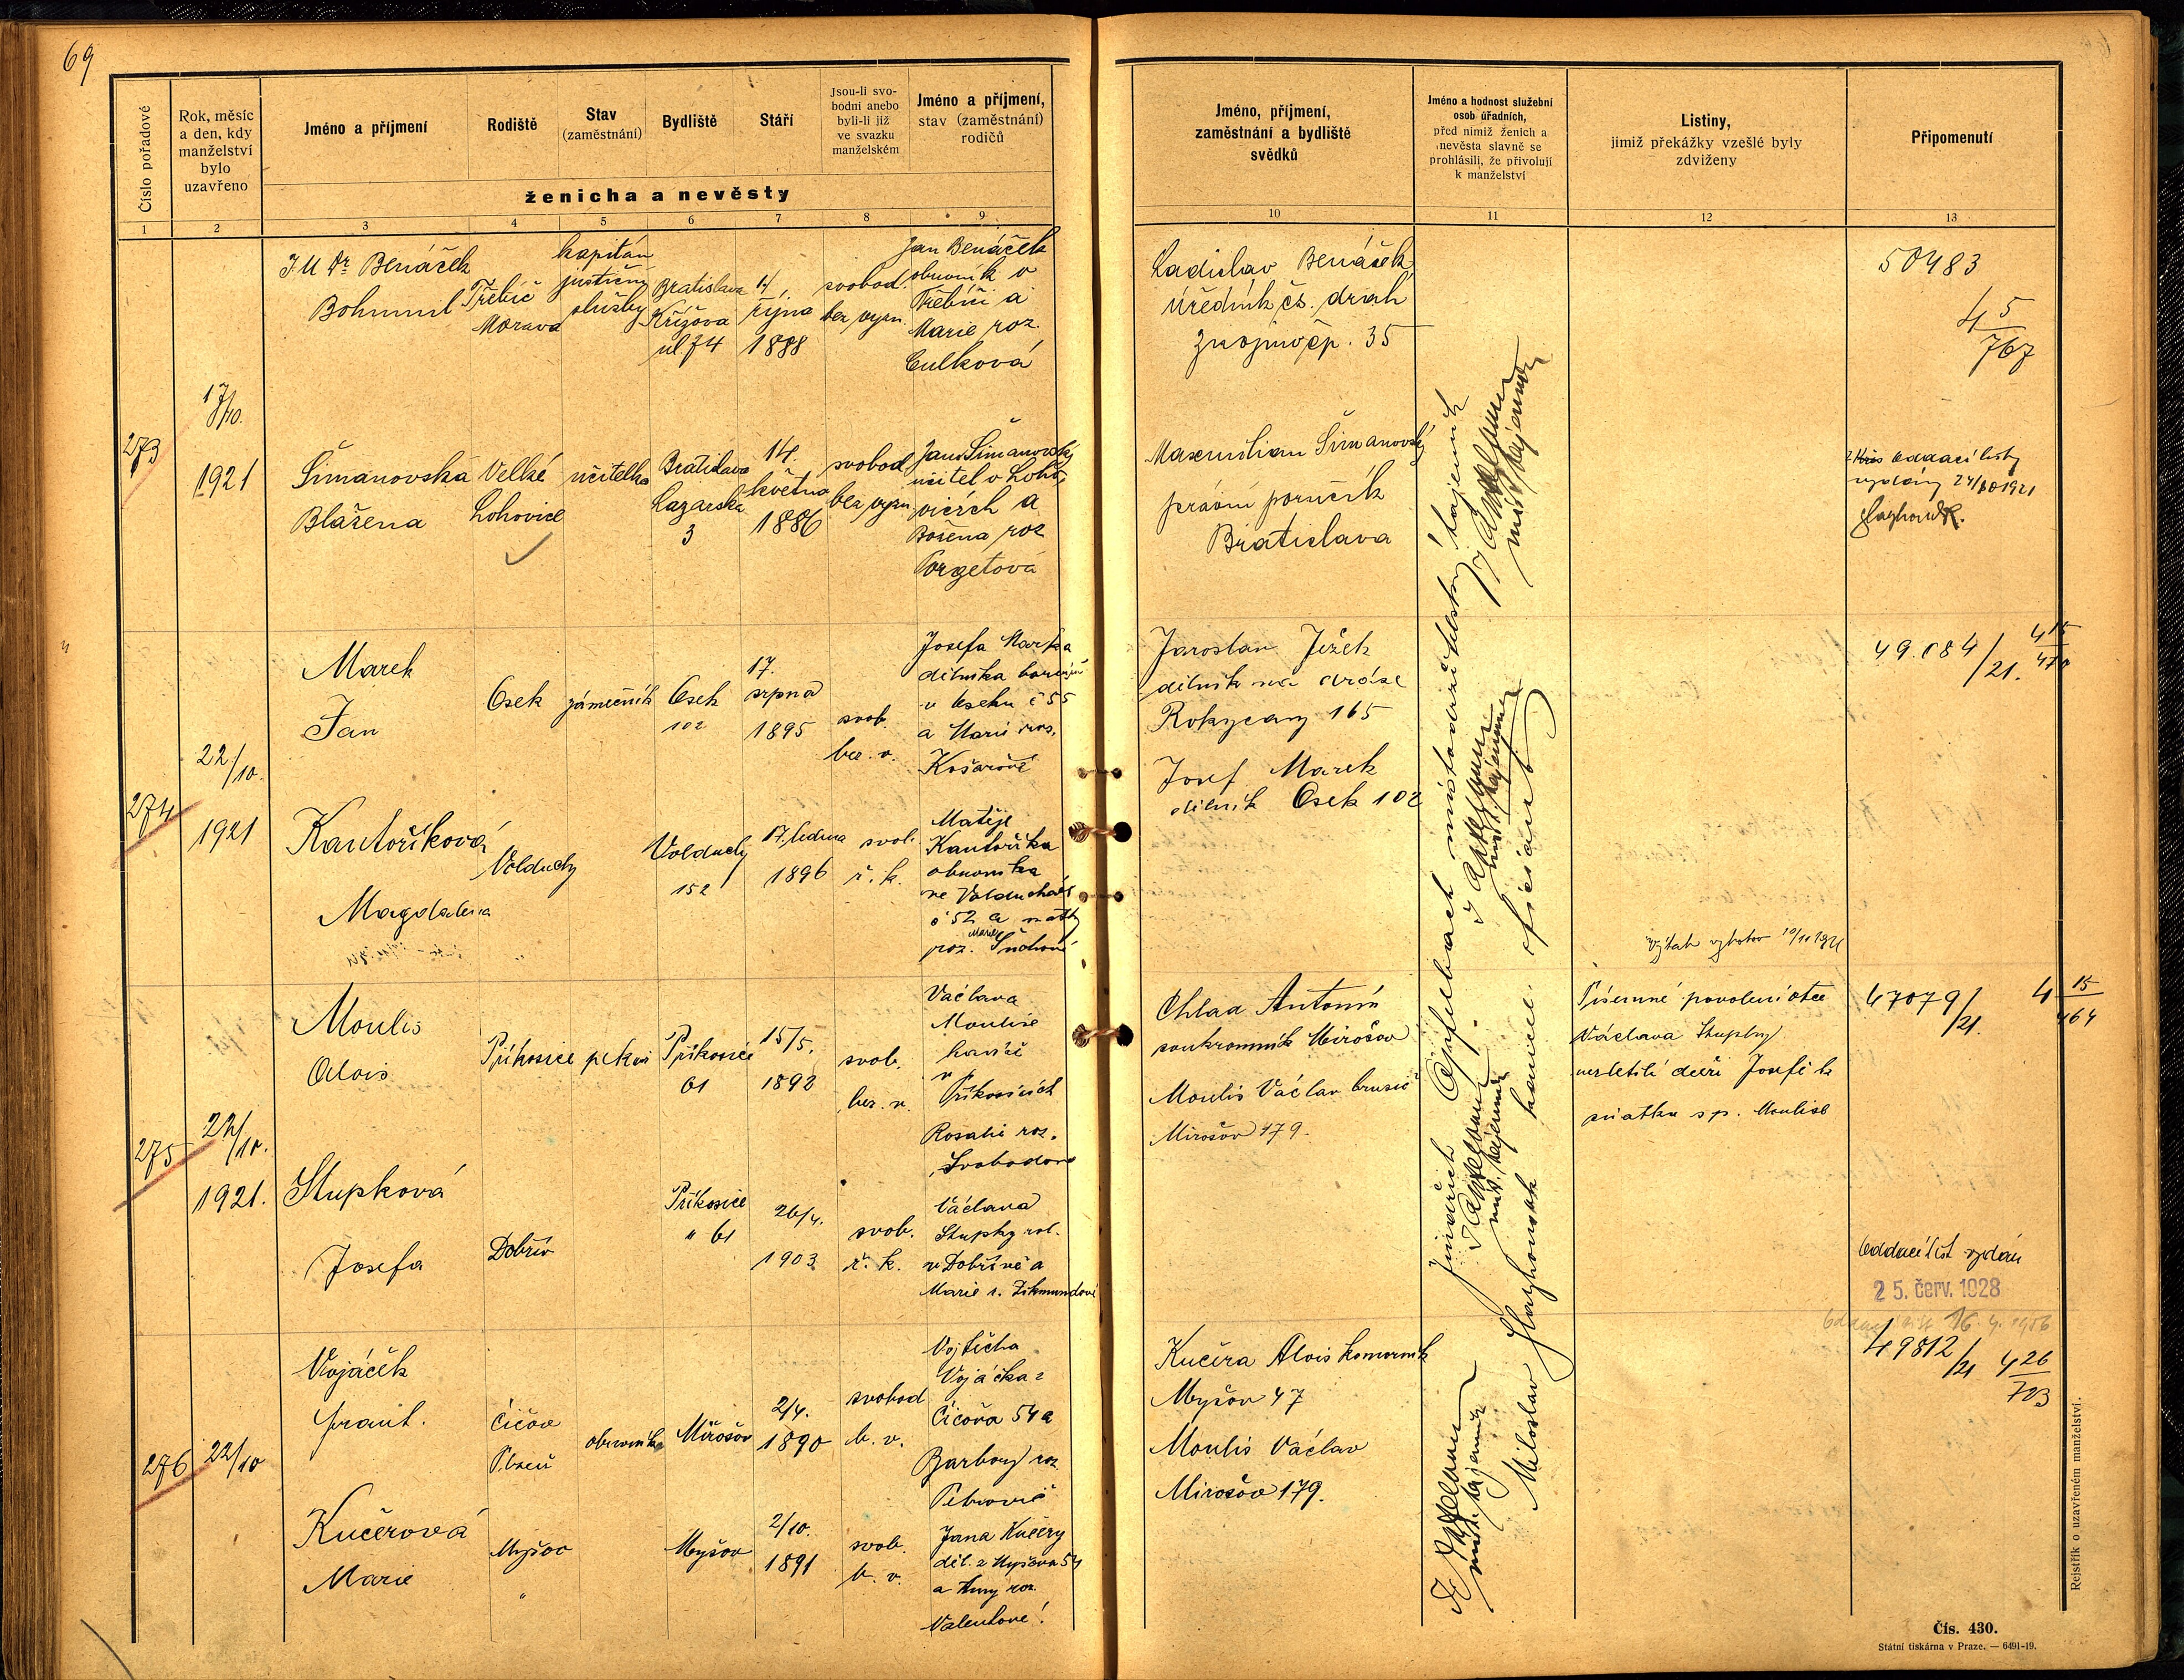 69
Číslo pořadové
Rok, měsíc
a den, kdy
manželství
bylo
uzavřeno
Jméno a příjmení
Rodiště
Stav
(zaměstnání)
Bydliště
Stáří
Jsou-li svo-
bodni anebo
byli-li již
ve svazku
manželském
Jméno a příjmení,
stav (zaměstnání)
rodičů
ženicha a nevěsty
Jméno, příjmení,
zaměstnání a bydliště
svědků
Jméno a hodnost služební
osob úřadních,
před nimiž ženich a
nevěsta slavně se
prohlásili, že přivolují
k manželství
Listiny,
jimiž překážky vzešlé byly
zdviženy
Připomenutí
1 2 3 4 5 6 7 8 9 10 11 12 13
273
17/10.
1921
J U Dr Benáček
Bohumil
Třebíč
Morava
kapitán
justiční
služby
Bratislava
Křížova
ul 74
4.
října
1888
svobod.
bez vyzn.
Jan Benáček
obuvník v
Třebíči a
Marie roz.
Culková
Ladislav Benáček
úředník čs. drah
Znojmo čp. 35
50483
4 5/767
Šimanovská
Blažena
Velké
Lohovice
učitelka
Bratislava
Lazarska
3
14.
května
1886
svobod
bez vyzn
Jan Šimanovský
učitel v Loho-
vicích a
Božena roz
Forgetova
Maxmilian Šimanovský
právní poručík
Bratislava
oddací listy
vydány 24/10 1921
274
22/10.
1921
Marek
Jan
Osek
zámečník
Osek
102
17.
srpna
1895
svob.
bez. v.
Josefa Marka
dělníka
v Oseku č 55
a Marie roz.
Košařové
Jaroslav Ježek
dělník na dráze
Rokycany 165
Josef Marek
dělník Osek 102
49.684/21.
4 15/470
Kantoříková
Magdalena
Volduchy
Volduchy
152
17. ledna
1896
svob.
ř. k.
Matěje
Kantoříka
obuvníka
ve Volduchách
č 52 a matky
Marie
roz. Suchové
275
22/10.
1921.
Moulis
Alois
Příkosice
pekař
Příkosice
61
15/5.
1892
svob.
bez. v.
Václava
Moulise
kováře
v
Příkosicích
Rosalie roz.
Svobodové
Chlad Antonín
soukromník Mirošov
Moulis Václav brusič
Mirošov 179.
Písemné povolení otce
Václava Stupky
nezletilé dceři Josefě k
sňatku s p. Moulise
47079/21.
4 15/464
Stupková
Josefa
Dobřív
Příkosice
" 61
26/4.
1903
svob.
ř. k.
Václava
Stupky rol.
v Dobřívě a
Marie r. Zikmundové
Oddací list vydán
25. červ. 1928
276
22/10
Vojáček
Frant.
Číčov
Plzeň
obuvník
Mirošov
2/4.
1890
svobod
b. v.
Vojtěcha
Vojáčka z
Číčova 54 a
Barbory roz.
Petrovič
Kučera Alois komorník
Myšov 47
Moulis Václav
Mirošov 179.
49812/21
4 26/703
Kučerová
Marie
Myšov
"
Myšov
2/10.
1891
svob.
b. v.
Jana Kučery
děl. z Myšova 54
a Anny roz.
Valentové
Jindřich Apfelbach místodržitelský tajemník
Miloslav Hayhonsk kancel. oficiant
Čís. 430.
Státní tiskárna v Praze. — 6491-19.
Rejstřík o uzavřeném manželství.